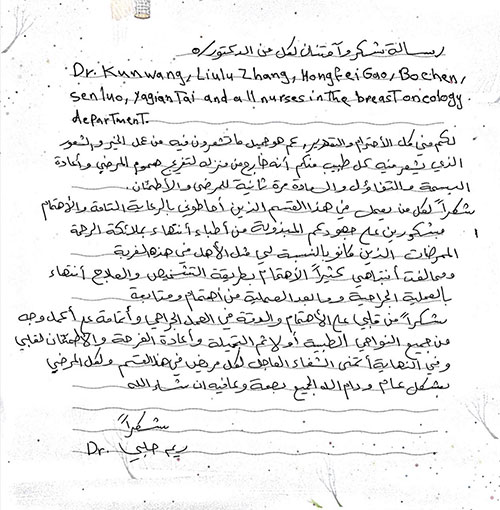 رسالة شكر وامتنان لكل من الدكتور/ه
Dr. Kunwang, Liulu Zhang, Hongfei Gao, Bochen,
senluo, Yaqian Tai and all nurses in the breast oncology
department.
لكم مني كل الأحترام والتقدير، عم هو جميل ما تشعرون فيه من عمل الخير والشعور
الذي يشعر فيه كل طبيب منكم أنه خارج من منزله لتفريج هموم المرضى وأعادة
البسمة والتفاؤل والسعادة مرة ثانية للمرضى والأطمئنان.
شكراً لكل من يعمل في هذا القسم الذين أحاطوني بالرعاية التامة والأهتمام
مشكورين على جهودكم المبذولة من أطباء أنتهاء بملائكة الرحمة
الممرضات الذين كانو بالنسبة لي مثل الأهل في هذه الغربة
ومالفت أنتباهي كثيراً الأهتمام بطريقة التشخيص والعلاج أنتهاء
بالعملية الجراحية وما بعد العملية من أهتمام ومتابعة
شكراً من قلبي على الأهتمام والدقة في العمل الجراحي وأتمامة على أكمل وجه
من جميع النواحي الطبية أولاً ثم التجميلة وأعادة الفرحة والأطمئنان لقلبي
وفي النهاية أتمنى الشفاء العاجل لكل مريض في هذا القسم ولكل المرضى
بشكل عام ودام الله الجميع بصحة وعافية ان شاء الله
شكراً
Dr. ريم حلبي